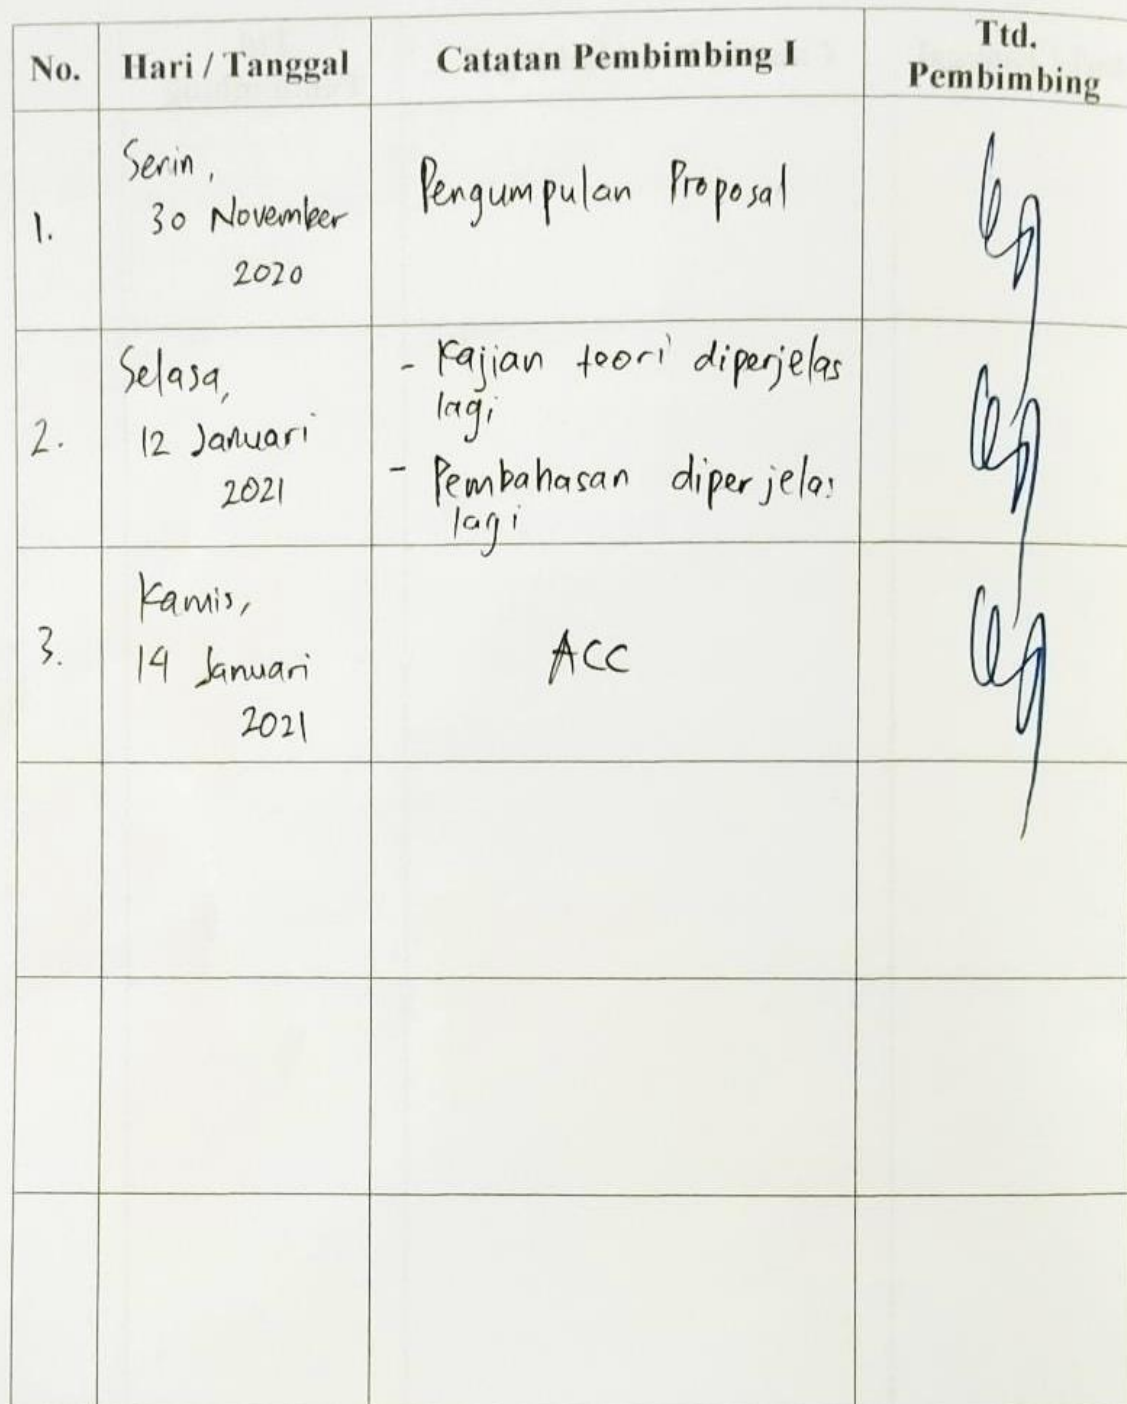 No. Hari / Tanggal Catatan Pembimbing I Ttd. Pembimbing
1. Senin, 30 November 2020 Pengumpulan Proposal
2. Selasa, 12 Januari 2021 - Kajian teori diperjelas lagi
- Pembahasan diperjelas lagi
3. Kamis, 14 Januari 2021 ACC